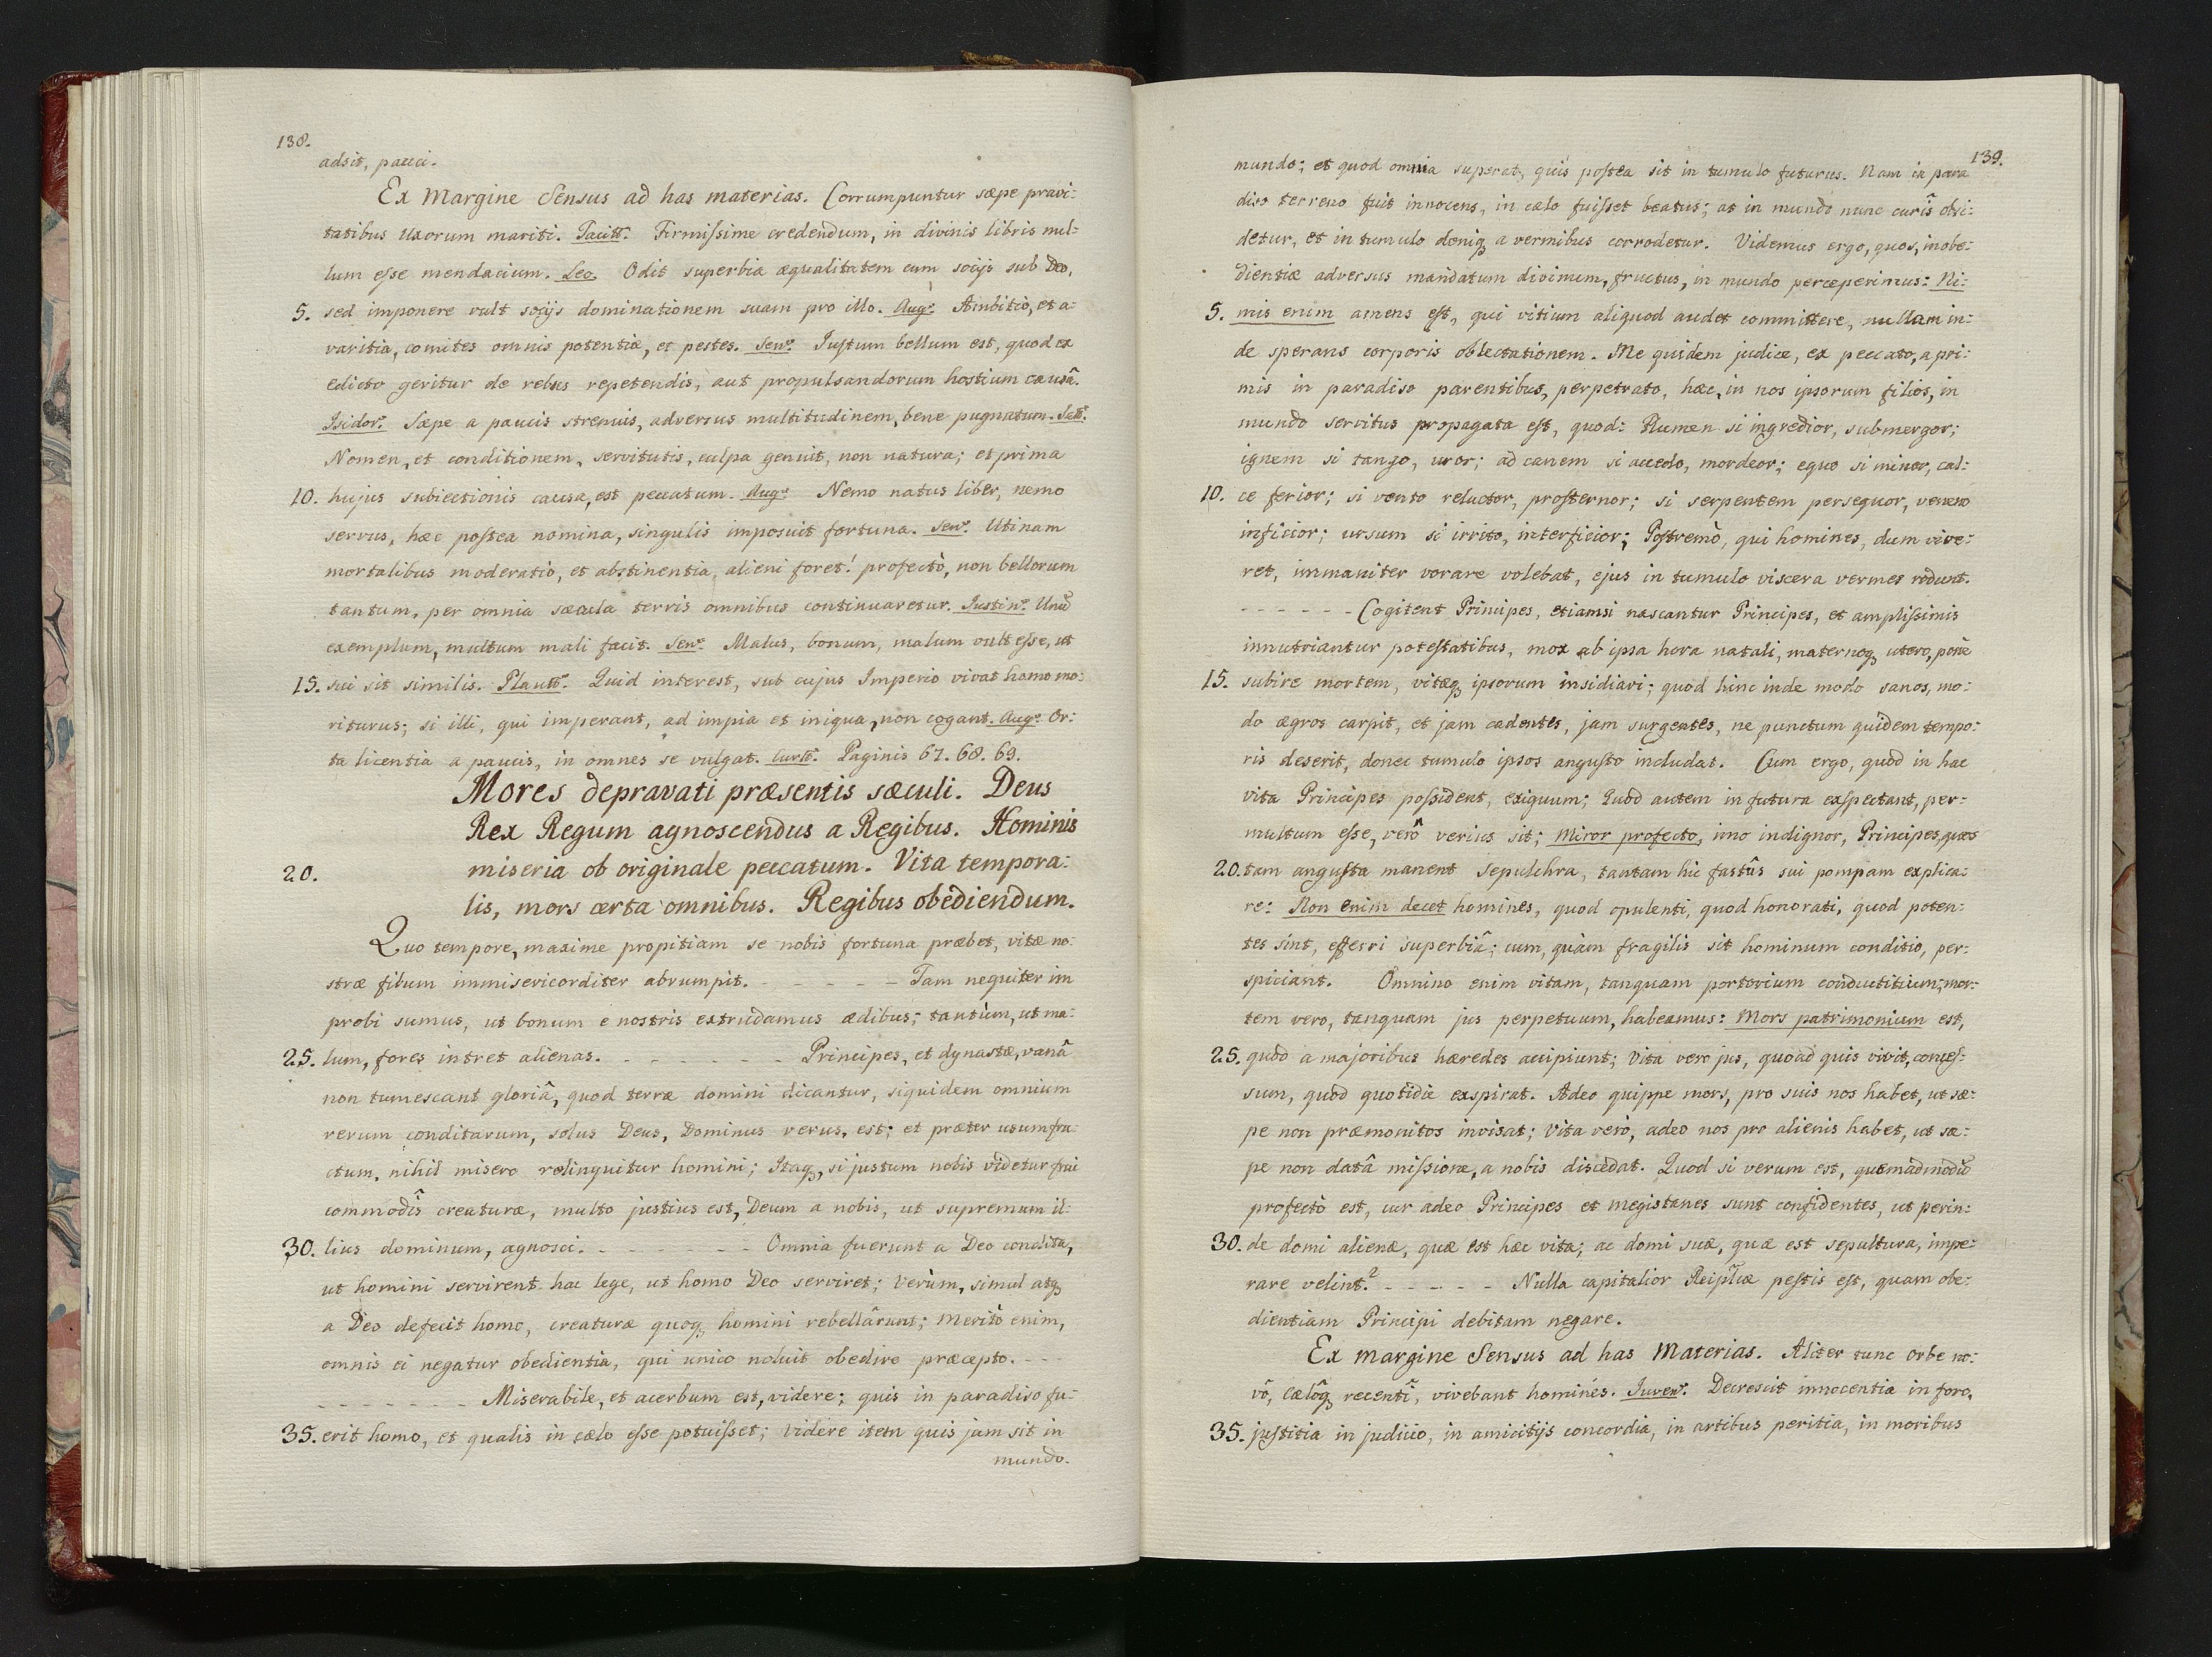 138.
adsit, pauci.
Ex Margine Sensus ad has materias. Corrumpuntur sæpe pravi:
tatibus Uxorum mariti. Tacitꝰ. Firmiſsime credendum, in divinis libris nul:
lum eſse mendacium. Leo. Odit superbia æqualitatem cum socijs sub Deo,
5. sed imponere vult socijs dominationem suam pro illo. Augꝰ. Ambitio, et a:
varitia, comites omnis potentiæ, et pestes. Senꝰ. Juſtum bellum est, quod ex
edicto geritur de rebus repetendis, aut propulsandorum hostium causâ.
Isidorꝰ. Sæpe a paucis strenuis, adversus multitudinem, bene pugnatum. Salꝰ.
Nomen, et conditionem, servitutis, culpa genuit, non natura; et prima
10. hujus subiectionis causa, est peccatum. Augꝰ. Nemo natus liber, nemo
servus, hæc poſtea nomina, singulis imposuit fortuna. Senꝰ. Utinam
mortalibus moderatio, et abstinentia, alieni foret! profectò, non bellorum
tantum, per omnia sæcula terris omnibus continuaretur. Justinꝰ. Unū
exemplum, multum mali facit. Senꝰ. Malus, bonum, malum vult eſse, ut
15. sui sit similis. Plautꝰ. Quid interest, sub cujus Imperio vivat homo mo:
riturus; si illi, qui imperant, ad impia et iniqua, non cogant. Augꝰ. Or:
ta licentia a paucis, in omnes se vulgat. Curtꝰ. Paginis 67. 68. 69.
Mores depravati præsentis sæculi. Deus
Rex Regum agnoscendus a Regibus. Hominis
20. miseria ob originale peccatum. Vita tempora:
lis, mors certa omnibus. Regibus obediendum.
Quo tempore, maxime propitiam se nobis fortuna præbet, vitæ no:
stræ filum immisericorditer abrumpit. - - - - - Tam nequiter im
probi sumus, ut bonum e nostris extrudamus ædibus; tantùm, ut ma:
25. lum, fores intret alienas. - - - - - - - Principes, et dynastæ, vanâ
non tumescant gloriâ, quod terræ domini dicantur, siquidem omnium
rerum conditarum, solus Deus, Dominus verus, est; et præter usumfru:
ctum, nihil misero relinquitur homini; Itaq꜒, si justum nobis videtur frui
commodis̑ creaturæ, multo justius est, Deum a nobis, ut supremum il:
30. lius dominum, agnosci. - - - - - - - Omnia fuerunt a Deo condita,
ut homini servirent hac lege, ut homo Deo serviret; Verùm, simul atq꜒
a Deo defecit homo, creaturæ quoq꜒ homini rebellârunt; Meritò enim,
omnis ei negatur obedientia, qui unico noluit obedire præcepto. - - -
- - - - - - - Miserabile, et acerbum est, videre; quis in paradiso fu:
35. erit homo, et qualis in cælo eſse potuiſset; Videre item quis jam sit in
mundo.
139.
mundo; et quod omnia superat, quis poſtea sit in tumulo futurus. Nam in para
diso terreno fuit innocens, in cælo fuiſset beatus; at in mundo nunc curis̑ obsi:
detur, et in tumulo deniq꜒ a vermibus corrodetur. Videmus ergo, quos, inobe:
dientiæ adversus mandatum divinum, fructus, in mundo perceperimus: Ni:
5. mis enim amens eſt, qui vitium aliquod audet committere, nullam in:
de sperans corporis oblectationem. Me quidem judice, ex peccato, a pri:
mis in paradiso parentibus, perpetrato, hæc, in nos ipsorum filios, in
mundo servitus propagata eſt, quod: Flumen si ingredior, submergor;
ignem si tango, uror; ad canem si accedo, mordeor; equo si minor, cal:
10. ce ferior; si vento reluctor, proſternor; si serpentem persequor, veneno
inficior; ursum si irrito, interficior; Poſtremò, qui homines, dum vive:
ret, immaniter vorare volebat, ejus in tumulo viscera vermes rodunt.
- - - - - - Cogitent Principes, etiamsi nascantur Principes, et ampliſsimis
innutriantur poteſtatibus, mox ab ipsa hora natali, maternoq꜒ utero,
15. subire mortem, vitæq꜒ ipsorum insidiari; quod hinc inde modo sanos, mo:
do ægros carpit, et jam cadentes, jam surgentes, ne punctum quidem tempo:
ris deserit, donec tumulo ipsos anguſto includat. Cum ergo, quod in hac
vita Principes poſsident, exiguum; Quod autem in futura exſpectant, per:
multum eſse, verô verius sit; Miror profecto, imo indignor, Principes, quos
20. tam anguſta manent sepulchra, tantam hic fastûs sui pompam explica:
re: Non enim decet homines, quod opulenti, quod honorati, quod poten:
tes sint, efferri superbiâ; cum, quàm fragilis sit hominum conditio, per:
spiciant. Omnino enim vitam, tanquam portorium conductitium; mor:
tem vero, tanquam jus perpetuum, habeamus: Mors patrimonium est,
25. quod a majoribus hæredes accipiunt; Vita vero jus, quoad quis vivit, conceſ:
sum, quod quotidie exspirat. Adeo quippe mors, pro suis nos habet, ut sæ:
pe non præmonitos invisat; Vita verò, adeo nos pro alienis habet, ut sæ:
pe non datâ miſsione, a nobis discedat. Quod si verum est, quemadmodū
profectò est, cur adeo Principes et megistanes sunt confidentes, ut perin:
30. de domi alienæ, quæ est hæc vita; ac domi suæ, quæ est sepultura, impe:
rare velint? - - - - - Nulla capitalior Reiplicæ pestis eſt, quam obe:
dientiam Principi debitam negare.
Ex margine Sensus ad has Materias. Aliter tunc orbe no:
vô, cælôq꜒ recenti, vivebant homines. Juvenꝰ. Decrescit innocentia in foro,
35. juſtitia in judicio, in amicitijs concordia, in artibus peritia, in moribus